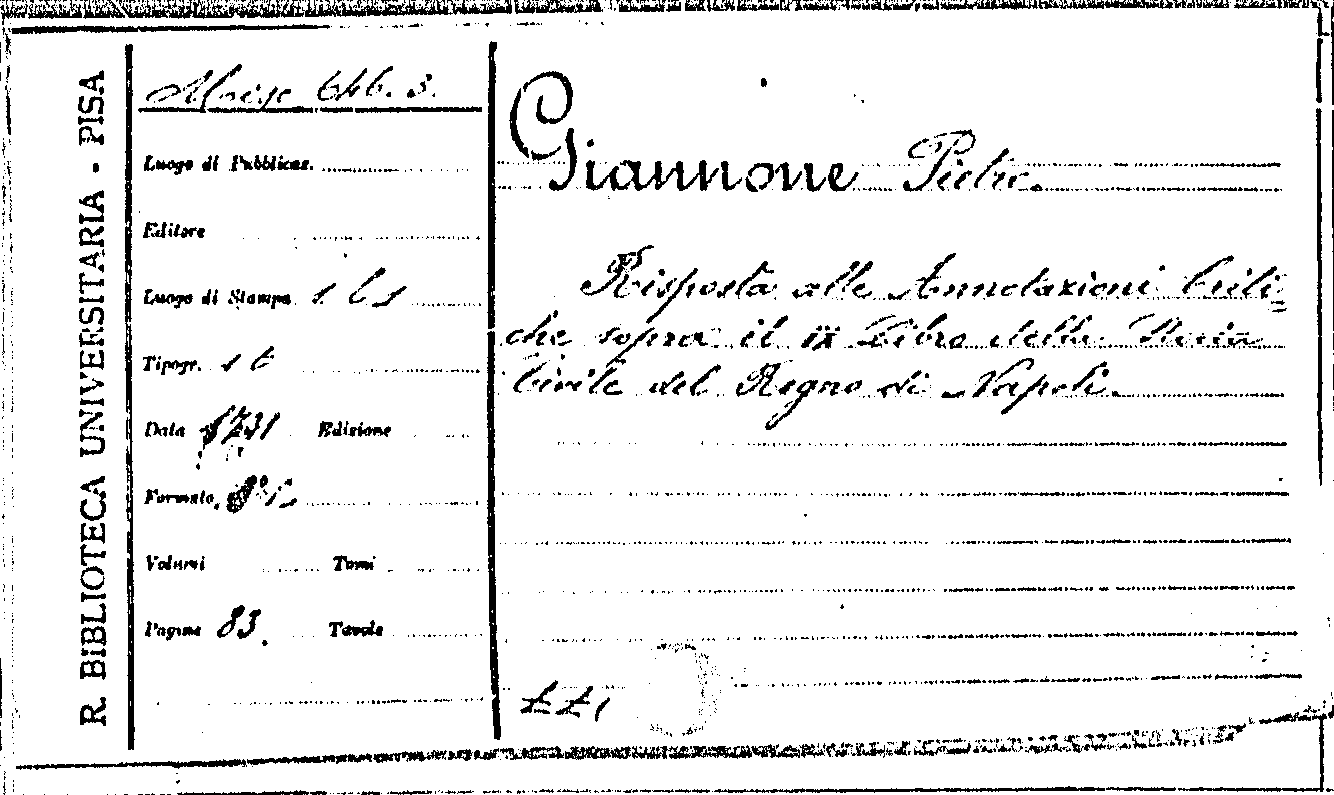 R. BIBLIOTECA UNIVERSITARIA - PISA
646. 3.
Luogo di Pubblicaz.
Editore
Luogo di Stampa
Tipogr. s t
Data 1731 Edizione
Formato 8°
Volumi Tomi
Pagine 83. Tavole
Giannone Pietro.
Risposta alle Annotazioni Criti=
che sopra il IX Libro della Storia
Civile del Regno di Napoli.